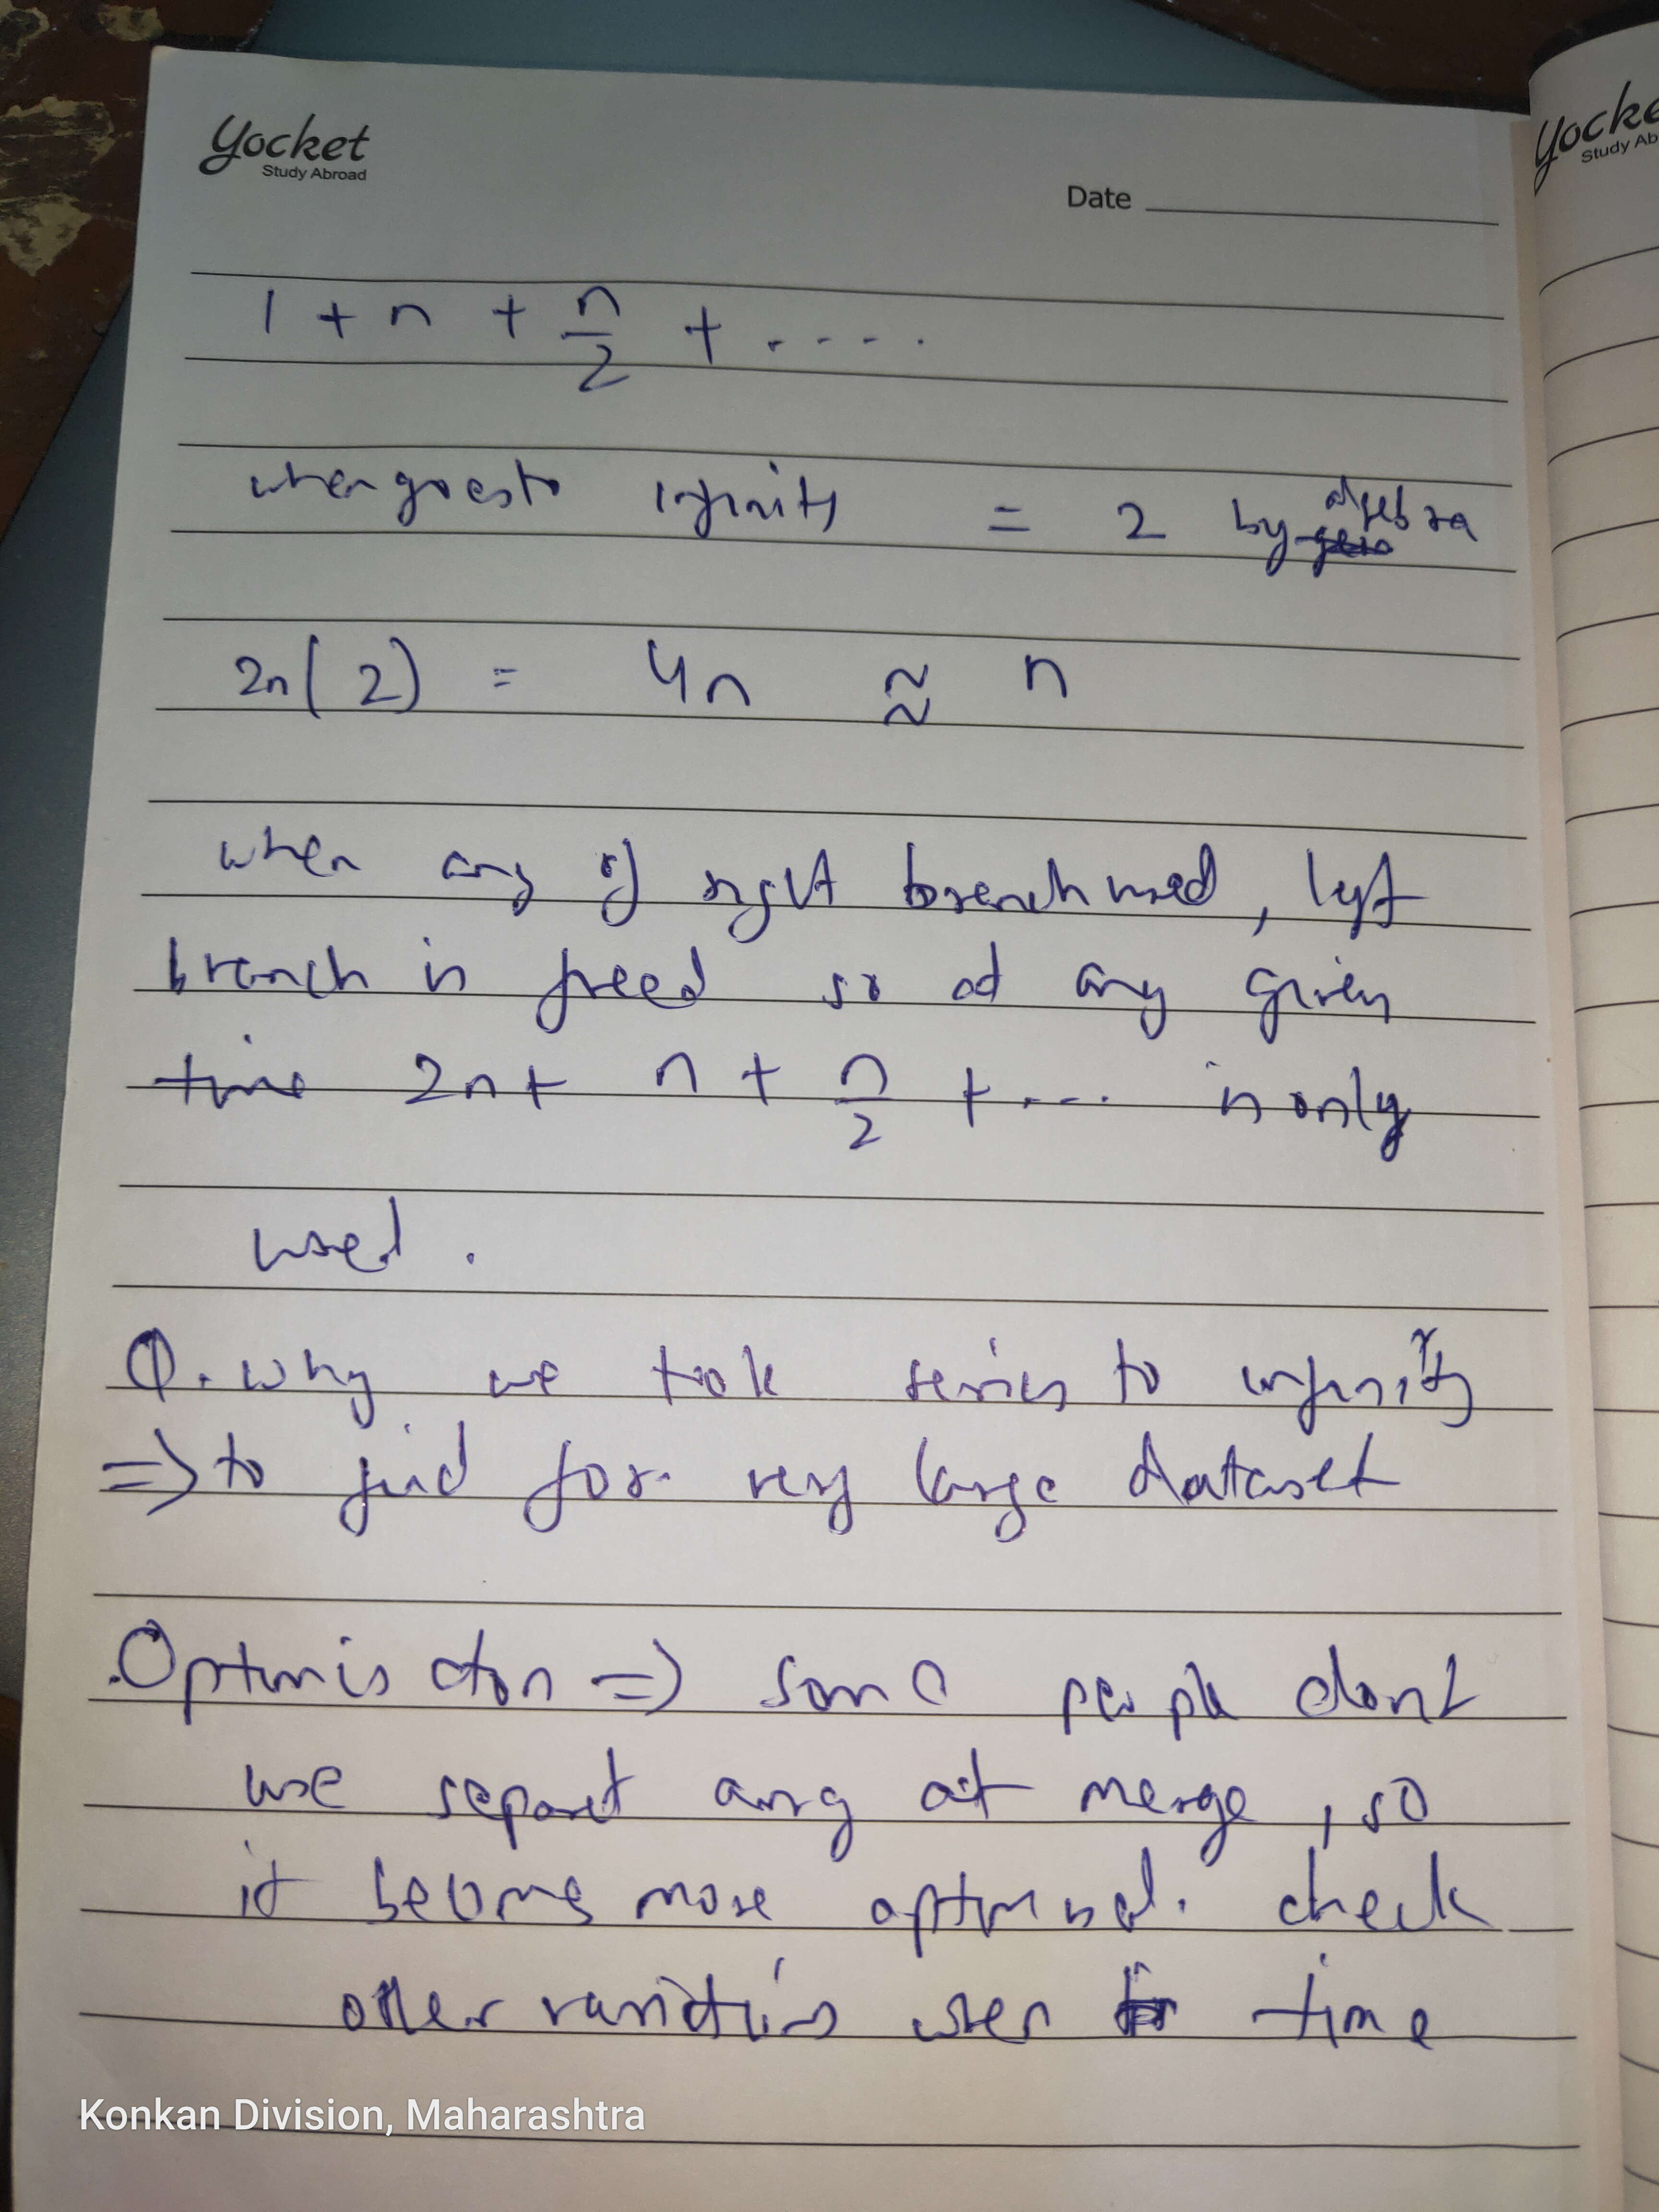 yocket
Study Abroad
yocke
Study Ab
Date
1 + n + n/2 + .....
when goes to infinity = 2 by algebra
2n(2) = 4n ≈ n
when any of right branch used, left
branch is freed so at any given
time 2n + n + n/2 + .... is only
used.
Q. why we took series to infinity
=> to find for very large dataset
Optimisation => some people dont
use separet array at merge, so
it becomes more optimised. check
other variations when time
Konkan Division, Maharashtra